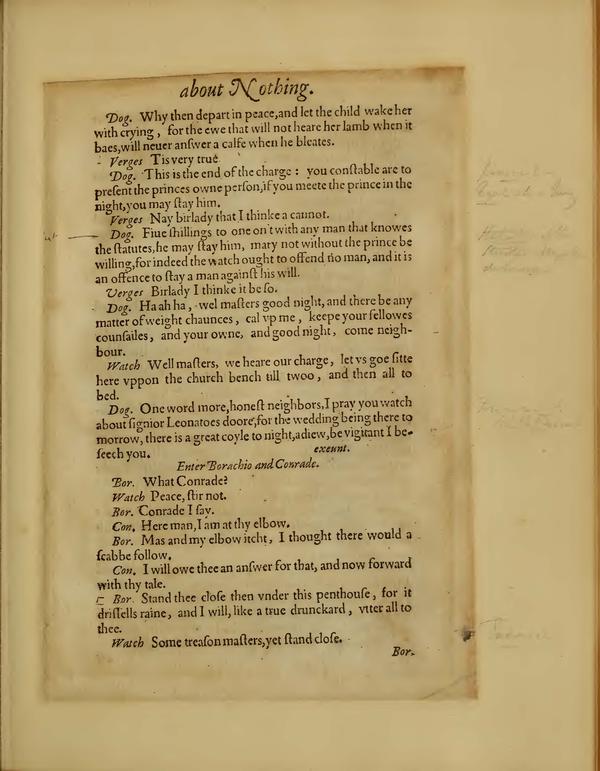 about Nothing.
Dog. Why then depart in peace,and let the child wake her
with crying , for the ewe that will not heare her lamb when it
baes,will neuer anſwer a calfe when he bleates.
Verges Tis very true.
Dog. This is the end of the charge : you conſtable are to
preſent the princes owne perſon,if you meete the prince in the
night,you may ſtay him.
Verges Nay birlady that I thinke a cannot.
Dog. Fiue ſhillings to one on't with any man that knowes
the ſtatutes,he may ſtay him, mary not without the prince be
willing,for indeed the watch ought to offend no man, and it is
an offence to ſtay a man againſt his will.
Verges Birlady I thinke it be ſo.
Dog. Ha ah ha , wel maſters good night, and there be any
matter of weight chaunces, cal vp me , keepe your fellowes
counſailes, and your owne, and good night, come neigh-
bour.
Watch Well maſters, we heare our charge, let vs goe ſitte
here vppon the church bench till twoo , and then all to
bed.
Dog. One word more,honeſt neighbors,I pray you watch
about ſignior Leonatoes doore,for the wedding being there to
morrow, there is a great coyle to night,adiew,be vigitant I be-
ſeech you. exeunt.
Enter Borachio and Conrade.
Bor. What Conrade?
Watch Peace, ſtir not.
Bor. Conrade I ſay.
Con. Here man,I am at thy elbow.
Bor. Mas and my elbow itcht, I thought there would a
ſcabbe follow.
Con. I will owe thee an anſwer for that, and now forward
with thy tale.
Bor. Stand thee cloſe then vnder this penthouſe, for it
driſſells raine, and I will, like a true drunckard , vtter all to
thee.
Watch Some treaſon maſters,yet ſtand cloſe.
Bor.